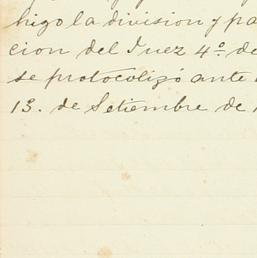 hizo la division y pa
cion del Juez 4º. de
se protocolizó ante
13. de Setiembre de